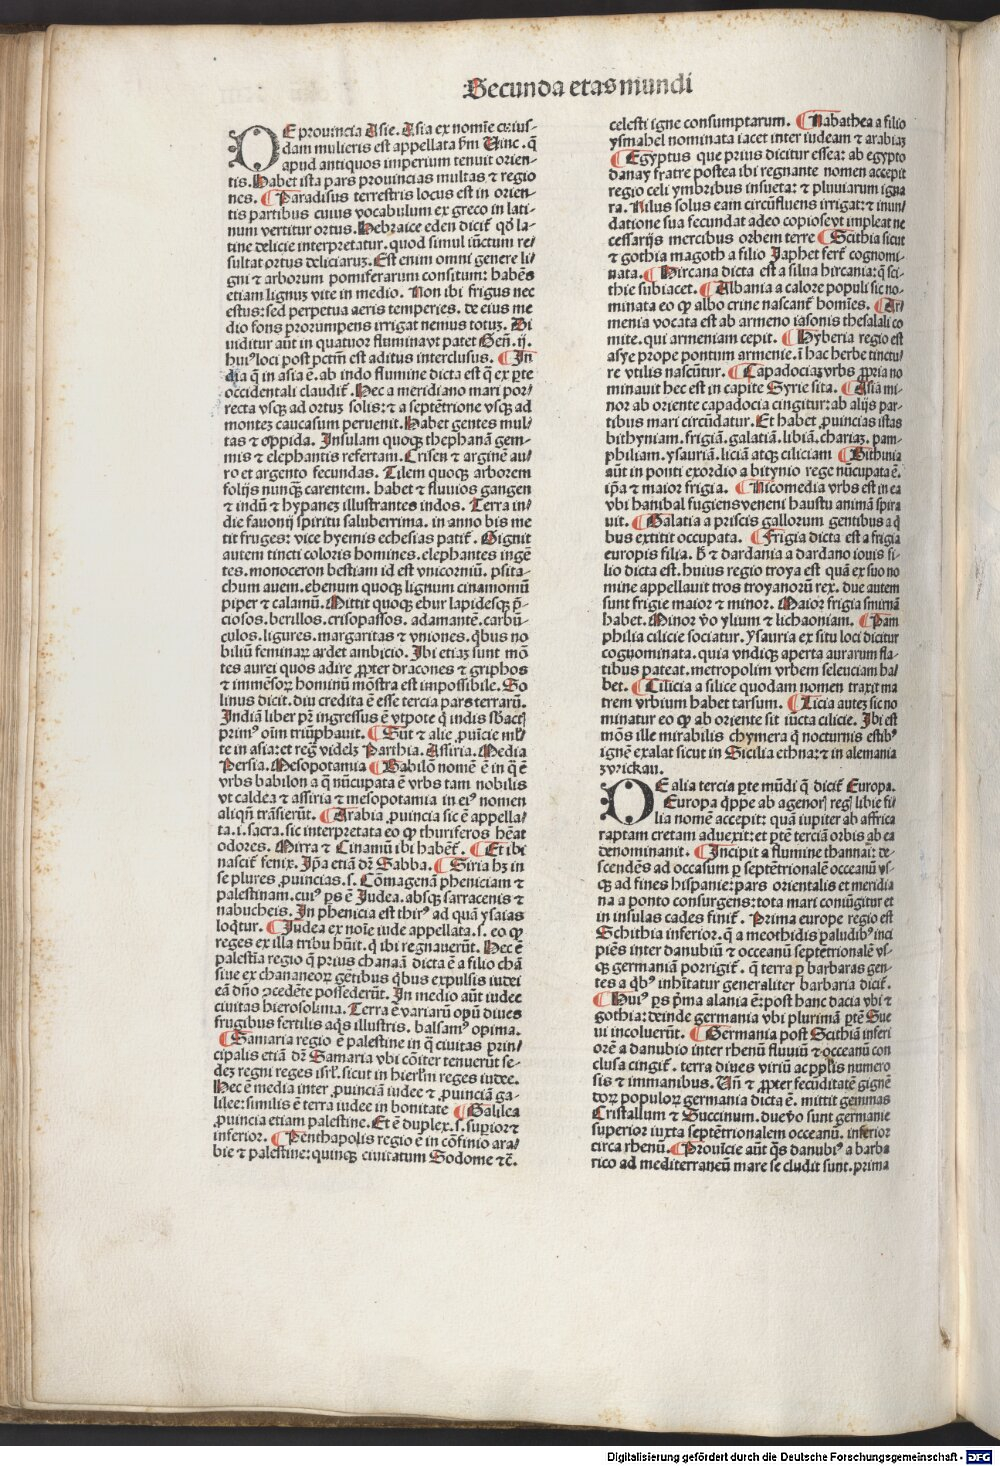 Secunda etas mundi
DE prouincia Asie. Asia ex nomīe cuius-
dam mulieris est appellata ẜm Vinc. q̄
apud antiquos imperium tenuit orien-
tis. Habet ista pars prouincias multas ⁊ regio
nes. ¶ Paradisus terrestris locus est in orien-
tis partibus cuius vocabulum ex greco in lati-
num vertitur ortus. Hebraice eden dicit᷑ qd̛ la-
tine delicie interpretatur. quod simul iūctum re-
sultat ortus deliciarꝫ. Est enim omni genere li-
gni ⁊ arborum pomiferarum consitum: habēs
etiam lignuꝫ vite in medio. Non ibi frigus nec
estus: sed perpetua aeris temperies. de eius me
dio fons prorumpens irrigat nemus totuꝫ. Di
uiditur aūt in quatuor fluminavt patet Geñ. ij.
huiꝰ loci post pctm̄ est aditus interclusus. ¶ In
dia q̄ in asia ē. ab indo flumine dicta est q̄ ex ꝑte
occidentali claudit᷑. Hec a meridiano mari por-
recta vsqꝫ ad ortuꝫ solis: ⁊ a septētrione vsqꝫ ad
monteꝫ caucasum peruenit. Habet gentes mul-
tas ⁊ oppida. Insulam quoqꝫ thephanā gem-
mis ⁊ elephantis refertam. Crisen ⁊ arginē au-
ro et argento fecundas. Tilem quoqꝫ arborem
folijs nunqꝫ̄ carentem. habet ⁊ fluuios gangen
⁊ indū ⁊ hypaneꝫ illustrantes indos. Terra in-
die fauonij spiritu saluberrima. in anno bis me
tit fruges: vice hyemis echesias patit᷑. Gignit
autem tincti coloris homines. elephantes ingē
tes. monoceron bestiam id est vnicorniū. psita-
chum auem. ebenum quoqꝫ lignum cinamomū
piper ⁊ calamū. Mittit quoqꝫ ebur lapidesqꝫ p̄-
ciosos. berillos. crisopassos. adamantē. carbū-
culos. ligures. margaritas ⁊ vniones. qͥbus no
biliū feminaꝝ ardet ambicio. Ibi etiaꝫ sunt mō
tes aurei quos adire ꝓpter dracones ⁊ griphos
⁊ immēsoꝝ hominū mōstra est impossibile. So
linus dicit. diu credita ē esse tercia pars terrarū.
Indiā liber pr̄ ingressus ē vtpote q̄ indis sb̄actꝭ
primꝰ oīm triūphauit. ¶ Sūt ⁊ alie ꝓuīcie ml̄-
te in asia: et reḡ videlꝫ Parthia. Assiria. Media
Persia. Mesopotamia ¶ Babilō nomē ē in q̄ ē
vrbs babilon a q̄ nūcupata ē vrbs tam nobilis
vt caldea ⁊ assiria ⁊ mesopotamia in eiꝰ nomen
aliqn̄ trāsierūt. ¶ Arabia ꝓuincia sic ē appella-
ta. i. sacra. sic interpretata eo ꝙ thuriferos hēat
odores. Mirra ⁊ Cinamū ibi habēt᷑. ¶ Et ibi
nascit᷑ fenix. Ip̄a etiā dr̄ Sabba. ¶ Siria hꝫ in
se plures ꝓuincias. s. Cōmagenā pheniciam ⁊
palestinam. cuiꝰ ꝑs ē Judea. absqꝫ sarracenis ⁊
nabucheis. In phenicia est thirꝰ ad quā ysaias
loqͥtur. ¶ Judea ex noīe iude appellata. s. eo ꝙ
reges ex illa tribu hūit. q̄ ibi regnauerūt. Hec ē
palestīa regio q̄ prius chanaā dicta ē a filio chā
siue ex chananeoꝝ gētibus qͥbus expulsis iudei
eā dn̄o ꝯcedēte possederūt. In medio aūt iudee
ciuitas hierosolima. Terra ē variarū opū diues
frugibus fertilis aqͥs illustris. balsamꝰ opima.
¶ Samaria regio ē palestine in q̄ ciuitas prin-
cipalis etiā dr̄ Samaria vbi cōiter tenuerūt se-
deꝫ regni reges isrl̄. sicut in hierl̄m reges iudee.
Hec ē media inter ꝓuinciā iudee ⁊ ꝓuinciā ga-
lilee: similis ē terra iudee in bonitate ¶ Galilea
ꝓuincia etiam palestine. Et ē duplex. s. suꝑior ⁊
inferior. ¶ Penthapolis regio ē in cōfinio ara-
bie ⁊ palestine: quinqꝫ ciuitatum Sodome ⁊c̄.
celesti igne consumptarum. ¶ Nabathea a filio
ysmahel nominata iacet inter iudeam ⁊ arabiaꝫ
¶ Egyptus que prius dicitur essea: ab egypto
danay fratre postea ibi regnante nomen accepit
regio celi ymbribus insueta: ⁊ pluuiarum igna
ra. Nilus solus eam circūfluens irrigat: ⁊ inun
datione sua fecundat adeo copiose vt impleat ne
cessarijs mercibus orbem terre ¶ Scithia sicut
⁊ gothia magoth a filio Japhet fert᷑ cognomi-
nata. ¶ Hircana dicta est a silua hircania: q̄ sci-
thie subiacet. ¶ Albania a calore populi sic no-
minata eo ꝙ albo crine nascant᷑ homīes. ¶ Ar-
menia vocata est ab armeno iasonis thesalali co
mite. qui armeniam cepit. ¶ Hyberia regio est
asye prope pontum armenie. ī hac herbe tinctu-
re vtilis nascūtur. ¶ Capadociaꝫ vrbs ꝓpria no
minauit hec est in capite Syrie sita. ¶ Asia mi-
nor ab oriente capadocia cingitur: ab alijs par-
tibus mari circūdatur. Et habet ꝓuincias istas
bithyniam. frigiā. galatiā. libiā. chariaꝫ. pam-
philiam. ysauriā. liciā atqꝫ ciliciam ¶ Bithinia
aūt in ponti exordio a bitynio rege nūcupata ē.
ip̄a ⁊ maior frigia. ¶ Nicomedia vrbs est in ea
vbi hanibal fugiens veneni haustu animā spira
uit. ¶ Galatia a priscis gallorum gentibus a q̄
bus extitit occupata. ¶ Frigia dicta est a frigia
europis filia. h̄ ⁊ dardania a dardano iouis fi-
lio dicta est. huius regio troya est quā ex suo no
mine appellauit tros troyanorū rex. due autem
sunt frigie maior ⁊ minor. Maior frigia smirnā
habet. Minor v̄o ylium ⁊ lichaoniam. ¶ Pam
philia cilicie sociatur. Ysauria ex situ loci dicitur
cognominata. quia vndiqꝫ aperta aurarum fla-
tibus pateat. metropolim vrbem seleuciam ha-
bet. ¶ Cilicia a silice quodam nomen traxit ma
trem vrbium habet tarsum. ¶ Licia auteꝫ sic no
minatur eo ꝙ ab oriente sit iūcta cilicie. Ibi est
mōs ille mirabilis chymera q̄ nocturnis estibꝰ
ignē exalat sicut in Sicilia ethna: ⁊ in alemania
zvrickau.
DE alia tercia ꝑte mūdi q̄ dicit᷑ Europa.
Europa q̄ppe ab agenorꝭ regꝭ libie fi-
lia nomē accepit: quā iupiter ab affrica
raptam cretam aduexit: et ꝑtē terciā orbis ab ea
denominauit. ¶ Incipit a flumine thannai: de-
scendēs ad occasum ꝑ septētrionalē occeanū vs-
qꝫ ad fines hispanie: pars orientalis et meridia
na a ponto consurgens: tota mari coniūgitur et
in insulas cades finit᷑. Prima europe regio est
Schithia inferior. q̄ a meothidis paludibꝰ inci
piēs inter danubiū ⁊ occeanū septētrionalē vs-
qꝫ germaniā porrigit᷑. q̄ terra ꝑ barbaras gen-
tes a qͥbꝰ inhītatur generaliter barbaria dicit᷑.
¶ Huiꝰ ꝑs p̄ma alania ē: post hanc dacia vbi ⁊
gothia: deinde germania vbi plurimā ꝑtē Sue
ui incoluerūt. ¶ Germania post Scithiā inferi
orē a danubio inter rhenū fluuiū ⁊ occeanū con
clusa cingit᷑. terra diues viriū ac ppl̄is numero
sis ⁊ immanibus. Vn̄ ⁊ ꝓpter fecūditatē gignē
doꝝ populoꝝ germania dicta ē. mittit gemmas
Cristallum ⁊ Succinum. due v̄o sunt germanie
superior iuxta septētrionalem occeanū. inferior
circa rhenū. ¶ Prouīcie aūt q̄s danubiꝰ a barba
rico ad mediterraneū mare se cludit sunt. prima
Digitalisierung gefördert durch die Deutsche Forschungsgemeinschaft - DFG